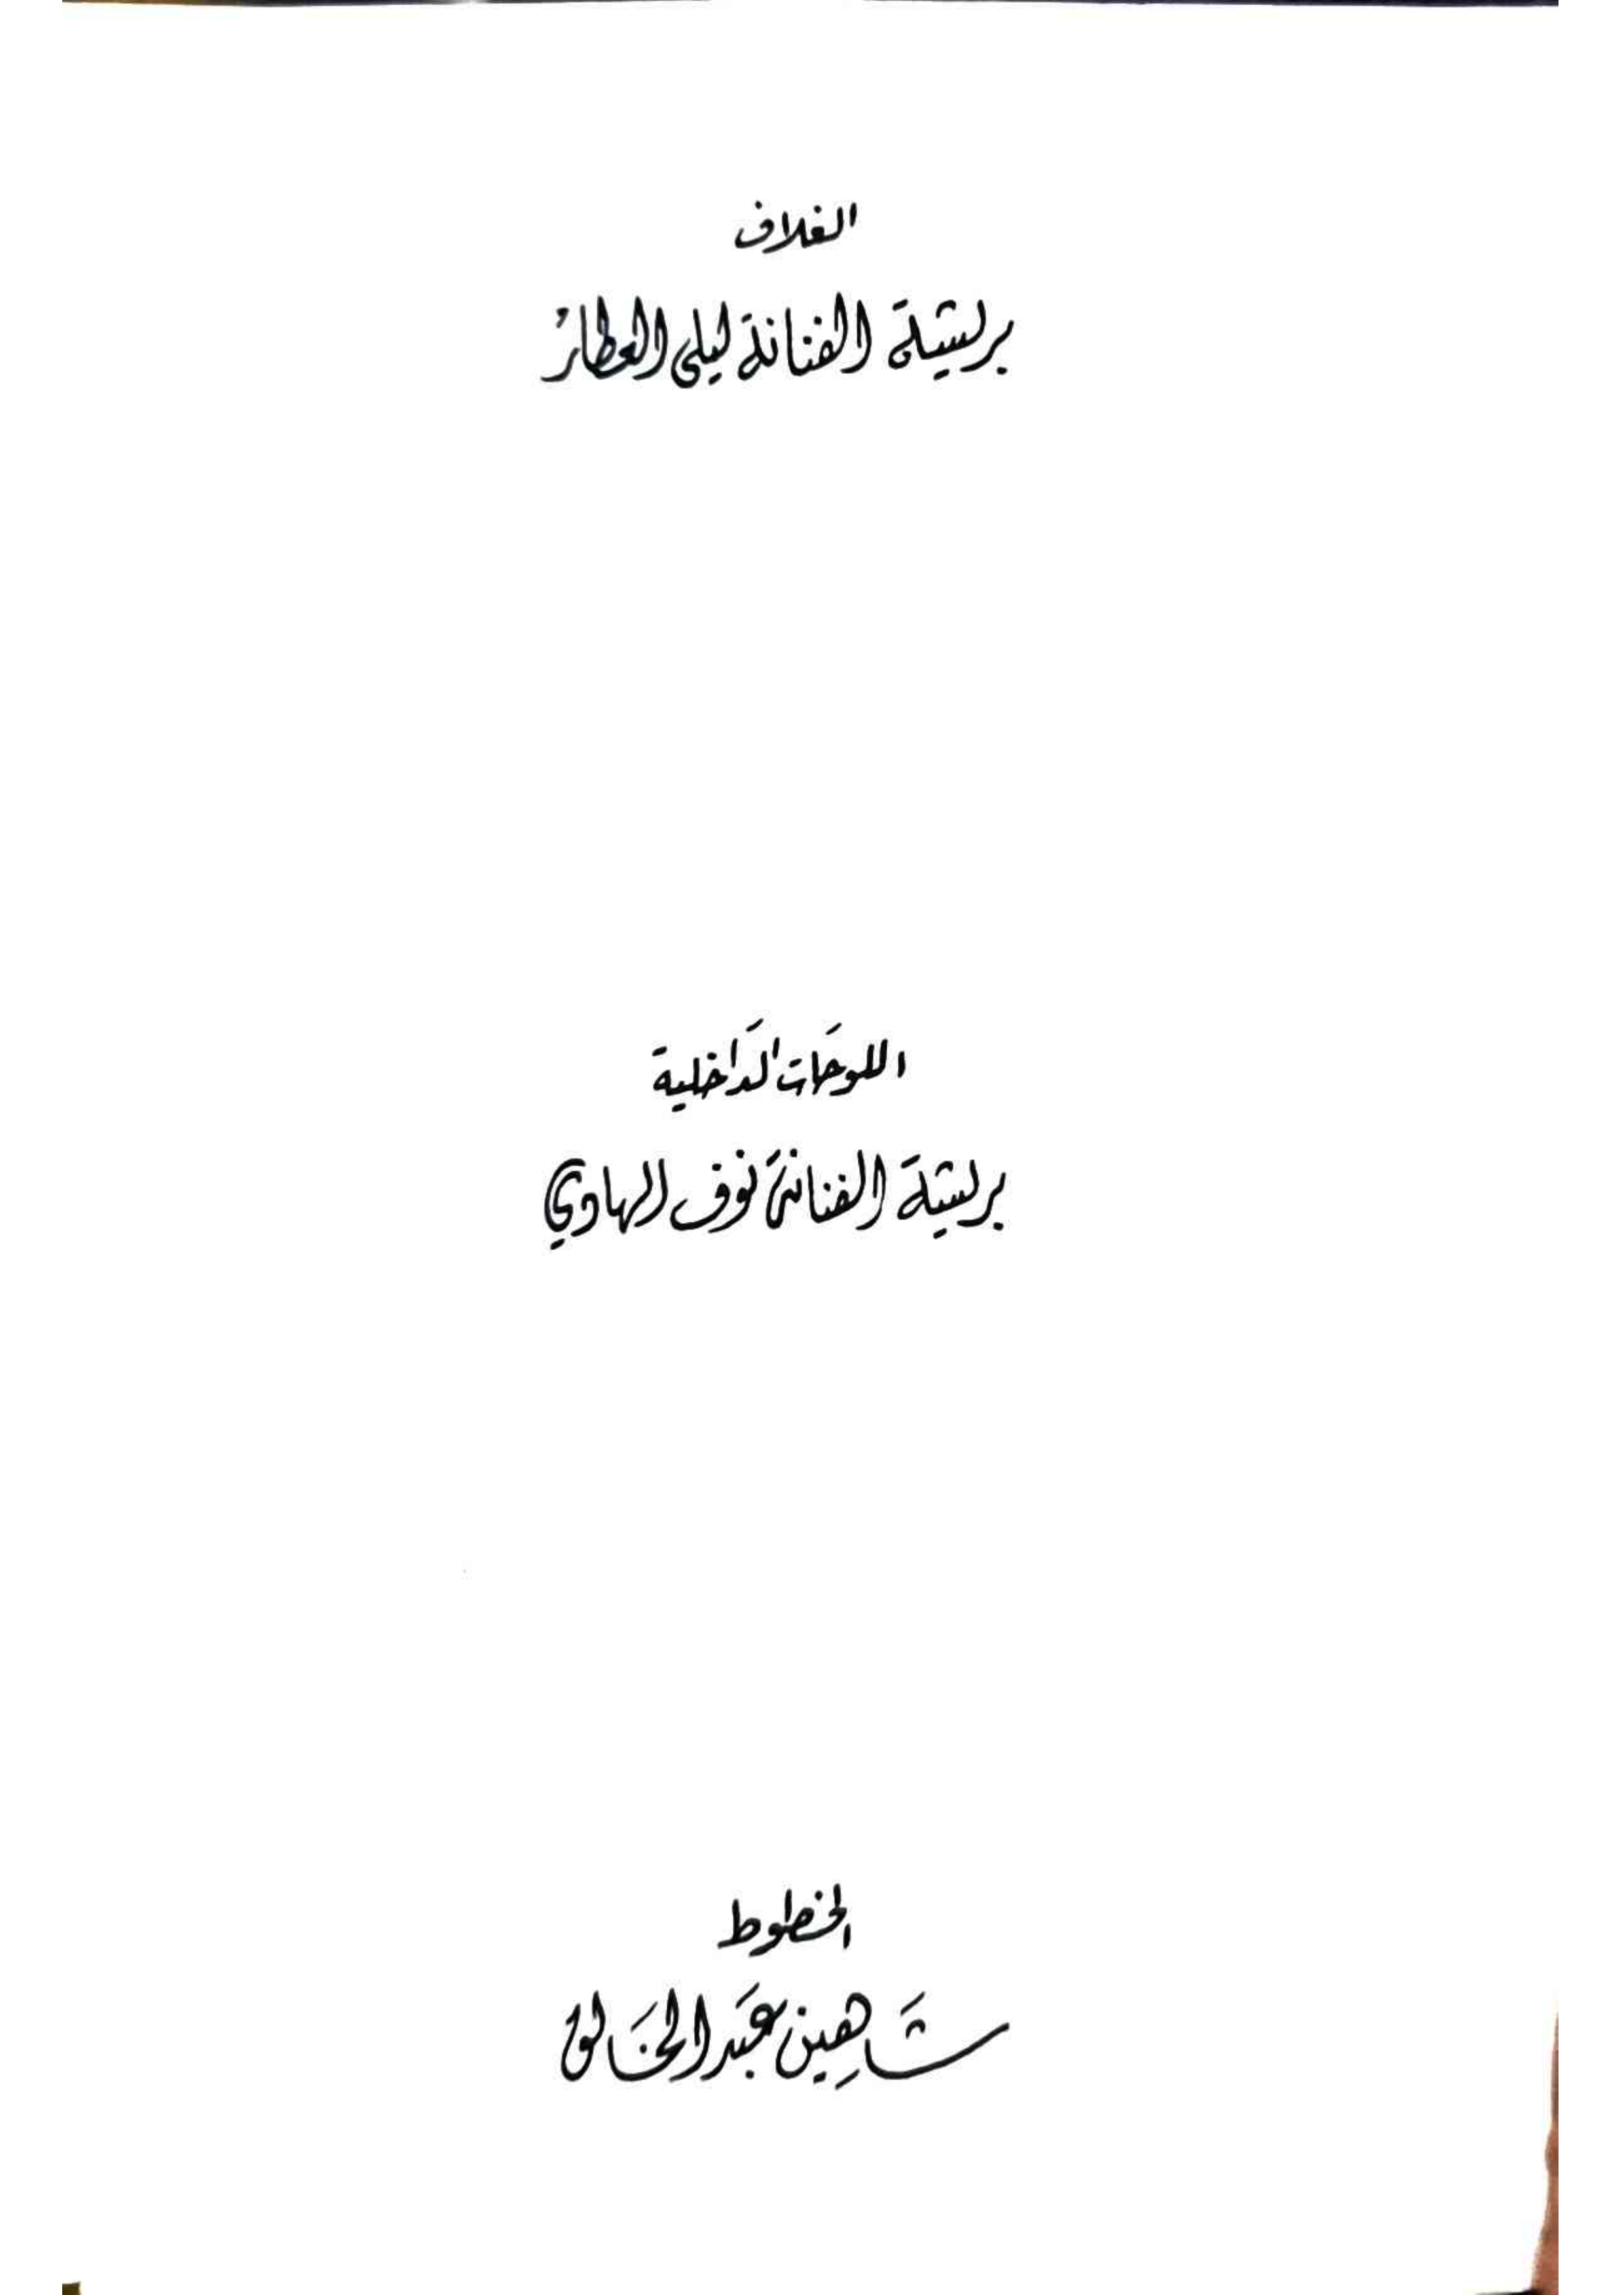 الغلاف
بريشة الفنانة ليلى العطار
اللوحات الداخلية
بريشة الفنانة نوف الهادي
الخطوط
شاهين عبد الخالق